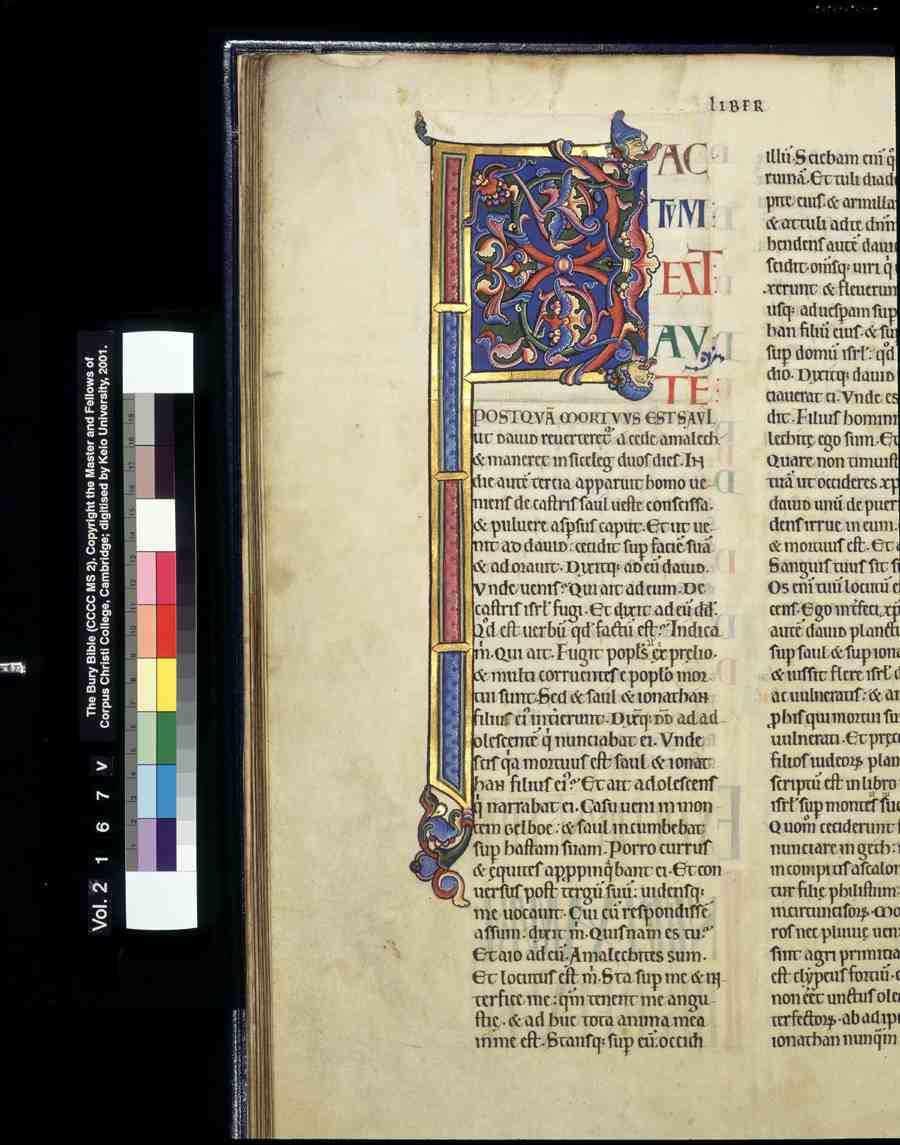 The Bury Bible (CCCC MS 2). Copyright the Master and Fellows of
Corpus Christi College, Cambridge; digitised by Keio University, 2001.
Vol. 2 1 6 7 v
LIBER
FAC
TVM
EST
AV
TE
POSTQVĀ MORTVVS EST SAVL
ut dauid reuerteret᷑ a cede amalech
& maneret in siceleg duos dies. IN
die autē tertia apparuit homo ue
niens de castris saul ueste conscissa.
& puluere aspsus caput. Et ut ue
nit ad dauid: cecidit sup faciē suā
& adorauit. Dixitq; ad eū dauid.
Vnde uenis? Qui ait ad eum. De
castris isrl̄ fugi. Et dixit ad eū dd̄.
Qd̄ est uerbū qd̄ factū est? Indica
m̄. Qui ait. Fugit popl̄s ex prelio.
& multi corruentes e poplō mor
tui sunt. Sed & saul & ionathan
filius ei᷒ intierunt. Dixq; dd̄ ad ad
olescentē q̄ nunciabat ei. Vnde
scis qa mortuus est saul & ionat
han filius ei᷒? Et ait adolescens
q̄ narrabat ei. Casu ueni in mon
tem Gelboe. & saul incumbebat
sup hastam suam. Porro currus
& equites appropinq̄bant ei. Et con
uersus post tergū suū. uidensq;
me uocauit. Cui cū respondissē
assum. dixit m̄. Quisnam es tu?
Et aio ad eū. Amalechites sum.
Et locutus est m̄. Sta sup me & in
terfice me: qm̄ tenent me angu
stie. & ad huc tota anima mea
in me est. Stansq; sup eū. occidi
illū. Sciebam eni q̄
ruinā. Et tuli diad
& attuli ad te dn̄m
hendens autē daui
scidit. om̄sq; uiri q̄
xerunt & fleuerun
usq; ad uespam sup
han filiū eius. & su
sup domū isrl̄. qd̄
dio. Dixitq; dauid
ciauerat ei. Vnde es
dit. Filius homin
lechite ego sum. Et
Quare non timuist
tuā ut occideres xp
dauid unū de puer
dens irrue in eum.
& mortuus est. Et a
Sanguis tuus sit s
Os eni tuū locutū e
cens. Ego intfeci xp
autē dauid planctu
sup saul & sup iona
& iussit flere isrl̄ d
ac uulneratis: & a
phis qui mortui su
uulnerati. Et prec
filios iudeorꝝ plan
scriptū est in libro
isrl̄ sup montes su
Quom ceciderunt
nunciare in geth:
in compitis ascalon
tur filie philistim.
incircuncisorꝝ. Mo
ros nec pluuie uen
sint agri primitia
est clypeus fortiū.
non eet unctus ole
terfectorꝝ. ab adip
ionathan nunq̄m